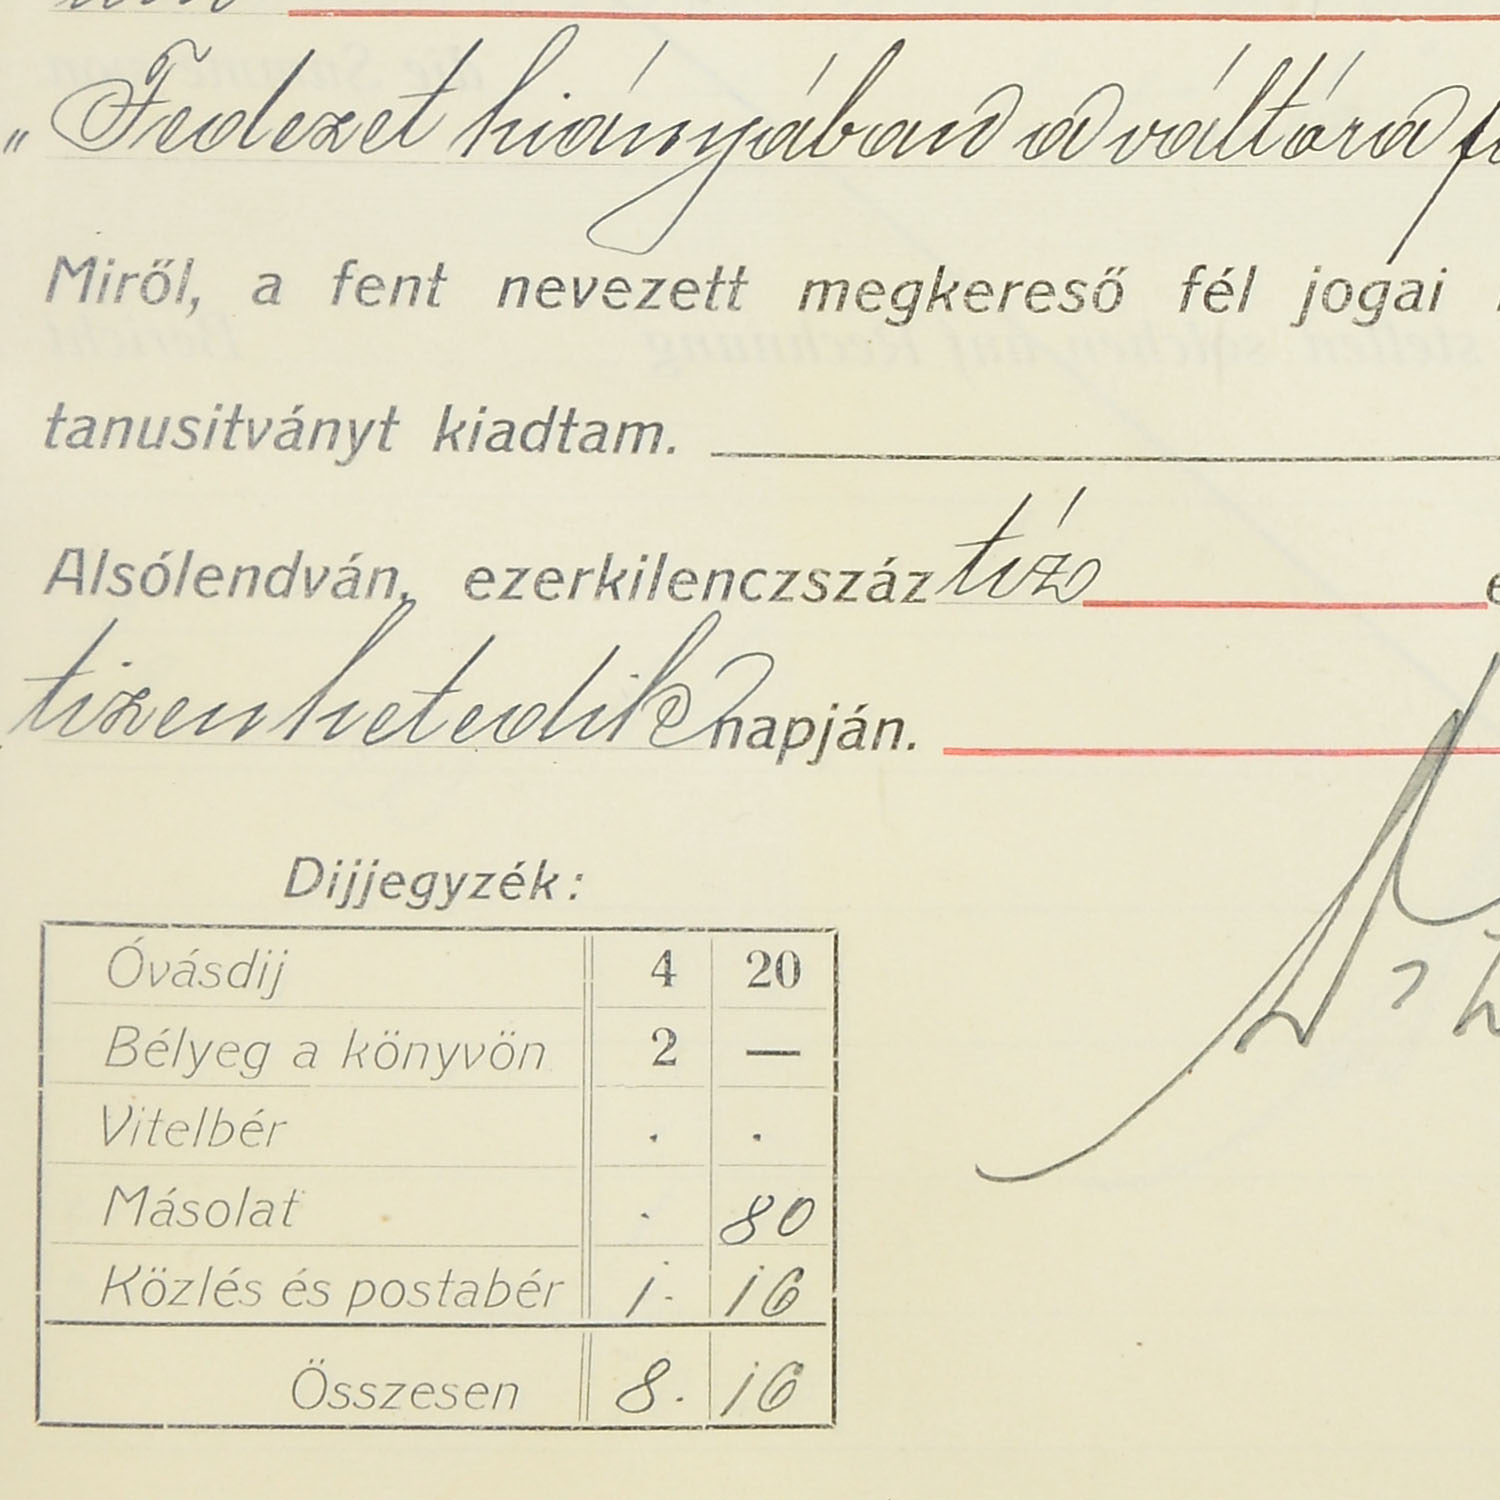 „Fedezet hiányában a váltóra
Miről, a fent nevezett megkereső fél jogai
tanusitványt kiadtam.
Alsólendván, ezerkilenczszáz tíz
tizenhetedik napján.
Dijjegyzék:
Óvásdij 4 20
Bélyeg a könyvön 2 —
Vitelbér . .
Másolat . 80
Közlés és postabér 1. 16
Összesen 8. 16